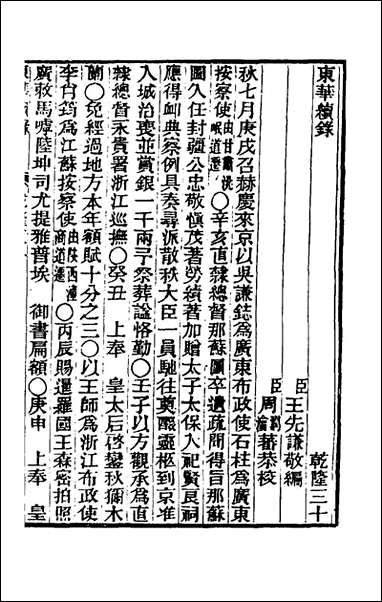 東華續錄 乾隆三十
臣王先謙敬編
臣周潤蕃恭校
秋七月庚戌召赫慶來京以吳謙鋕為廣東布政使石柱為廣東
按察使由甘肅洮岷道遷〇辛亥直隸總督那蘇圖卒遺疏聞得旨那蘇
圖久任封疆公忠敬慎茂著勞績著加贈太子太保入祀賢良祠
應得卹典察例具奏尋派散秩大臣一員馳往奠醊靈柩到京准
入城治喪並賞銀一千兩予祭葬諡恪勤〇壬子以方觀承為直
隸總督永貴署浙江巡撫〇癸丑 上奉 皇太后啓鑾秋獮木
蘭〇免經過地方本年額賦十分之三〇以王師為浙江布政使
李肖筠為江蘇按察使由陝西潼商道遷〇丙辰賜暹羅國王森密拍照
廣敕馬嘑陸坤司尤提雅普埃 御書扁額〇庚申 上奉 皇